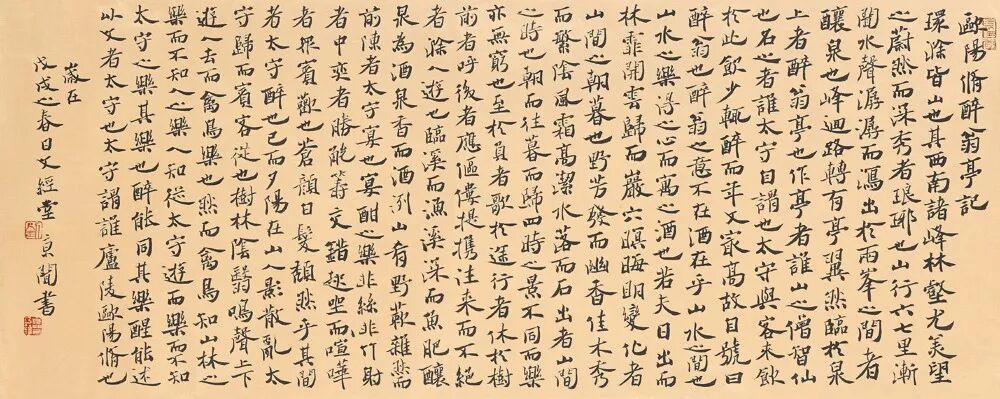 歐陽脩醉翁亭記
環滁皆山也其西南諸峰林壑尤美望
之蔚然而深秀者琅琊也山行六七里漸
聞水聲潺潺而瀉出於兩峯之間者
釀泉也峰迴路轉有亭翼然臨於泉
上者醉翁亭也作亭者誰山之僧智仙
也名之者誰太守自謂也太守與客來飲
於此飲少輒醉而年又最高故自號曰
醉翁也醉翁之意不在酒在乎山水之間也
山水之樂得之心而寓之酒也若夫日出而
林霏開雲歸而巖穴暝晦明變化者
山間之朝暮也野芳發而幽香佳木秀
而繁陰風霜高潔水落而石出者山間
之時也朝而往暮而歸四時之景不同而樂
亦無窮也至於負者歌於途行者休於樹
前者呼後者應傴僂提攜往來而不絕
者滁人遊也臨溪而漁溪深而魚肥釀
泉為酒泉香而酒洌山肴野蔌雜然而
前陳者太守宴也宴酣之樂非絲非竹射
者中弈者勝觥籌交錯起坐而喧嘩
者眾賓歡也蒼顏白髮頹然乎其間
者太守醉也已而夕陽在山人影散亂太
守歸而賓客從也樹林陰翳鳴聲上下
遊人去而禽鳥樂也然而禽鳥知山林之
樂而不知人之樂人知從太守遊而樂而不知
太守之樂其樂也醉能同其樂醒能述
以文者太守也太守謂誰廬陵歐陽脩也
歲在
戊戌之春日文經堂京聞書